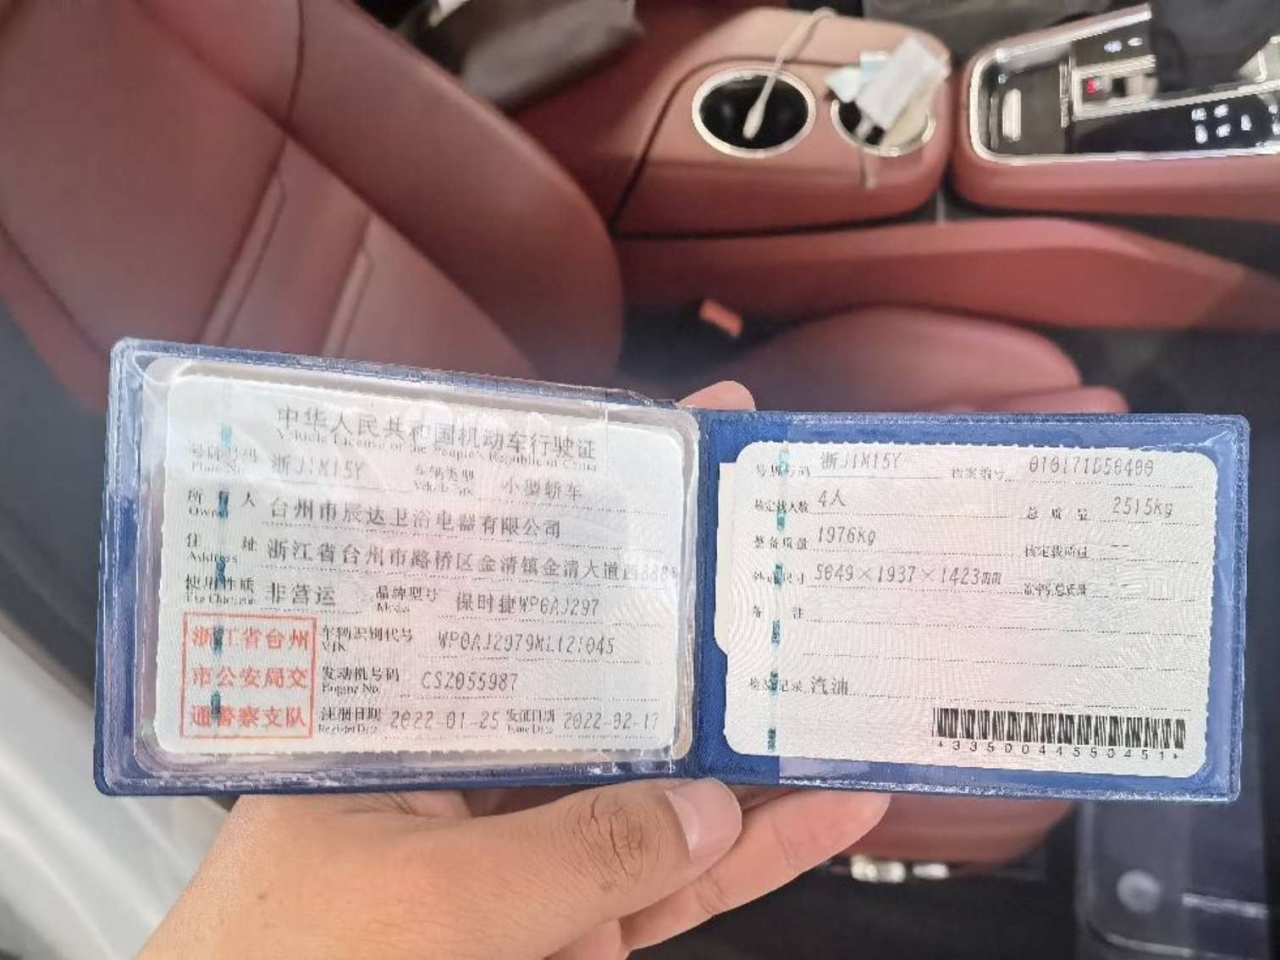 中华人民共和国机动车行驶证
Vehicle License of the People's Republic of China
号牌号码 浙J1M15Y 车辆类型 小型轿车
Plate No. Vehicle Type
所有人 台州市辰达卫浴电器有限公司
Owner
住址 浙江省台州市路桥区金清镇金清大道西888
Address
使用性质 非营运 品牌型号 保时捷WP0AJ297
Use Character Model
浙江省台州
市公安局交
通警察支队
车辆识别代号
VIN
发动机号码 CSZ055987
Engine No.
注册日期 2022-01-25 发证日期 2022-02-17
Register Date Issue Date
号牌号码 浙J1M15Y 档案编号
核定载人数 4人 总质量 2515kg
整备质量 1976kg 核定载质量 --
外廓尺寸 5049×1937×1423mm 准牵引总质量 --
备注
检验记录 汽油
*3350044550451*